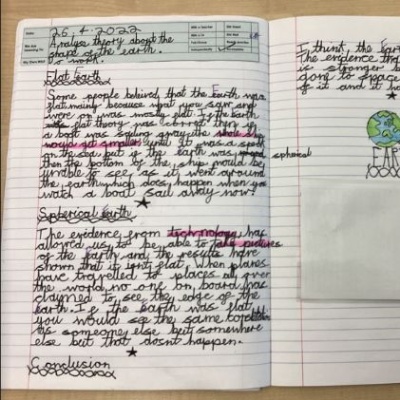 25.4.2022
Analyse theory about the
shape of the earth.
Flat Earth
Some people belived that the Earth was
flat mainly because what you saw and
were on was mostly flat. If the earth
flat theory was correct then if
a boat was sailing away the whole ship
would get smaller until it was a spot
on the sea but if the earth was spherical
then the bottom of the ship would be
unable to see as it went around
the earth which does happen when you
watch a boat sail away now.
Spherical earth
The evidence from technology has
allowed us to be able to take pictures
of the earth and the results have
shown that it isn't flat. When planes
have travelled to places all over
the world no one on board has
claymed to see the edge of the
earth. If the earth was flat
you would see the same
as someone else but somewhere
else but that dosnt happen.
Conclusion
I think the Eart
The evidence that
is stronger b
gone to space
of it and it ha
EAR